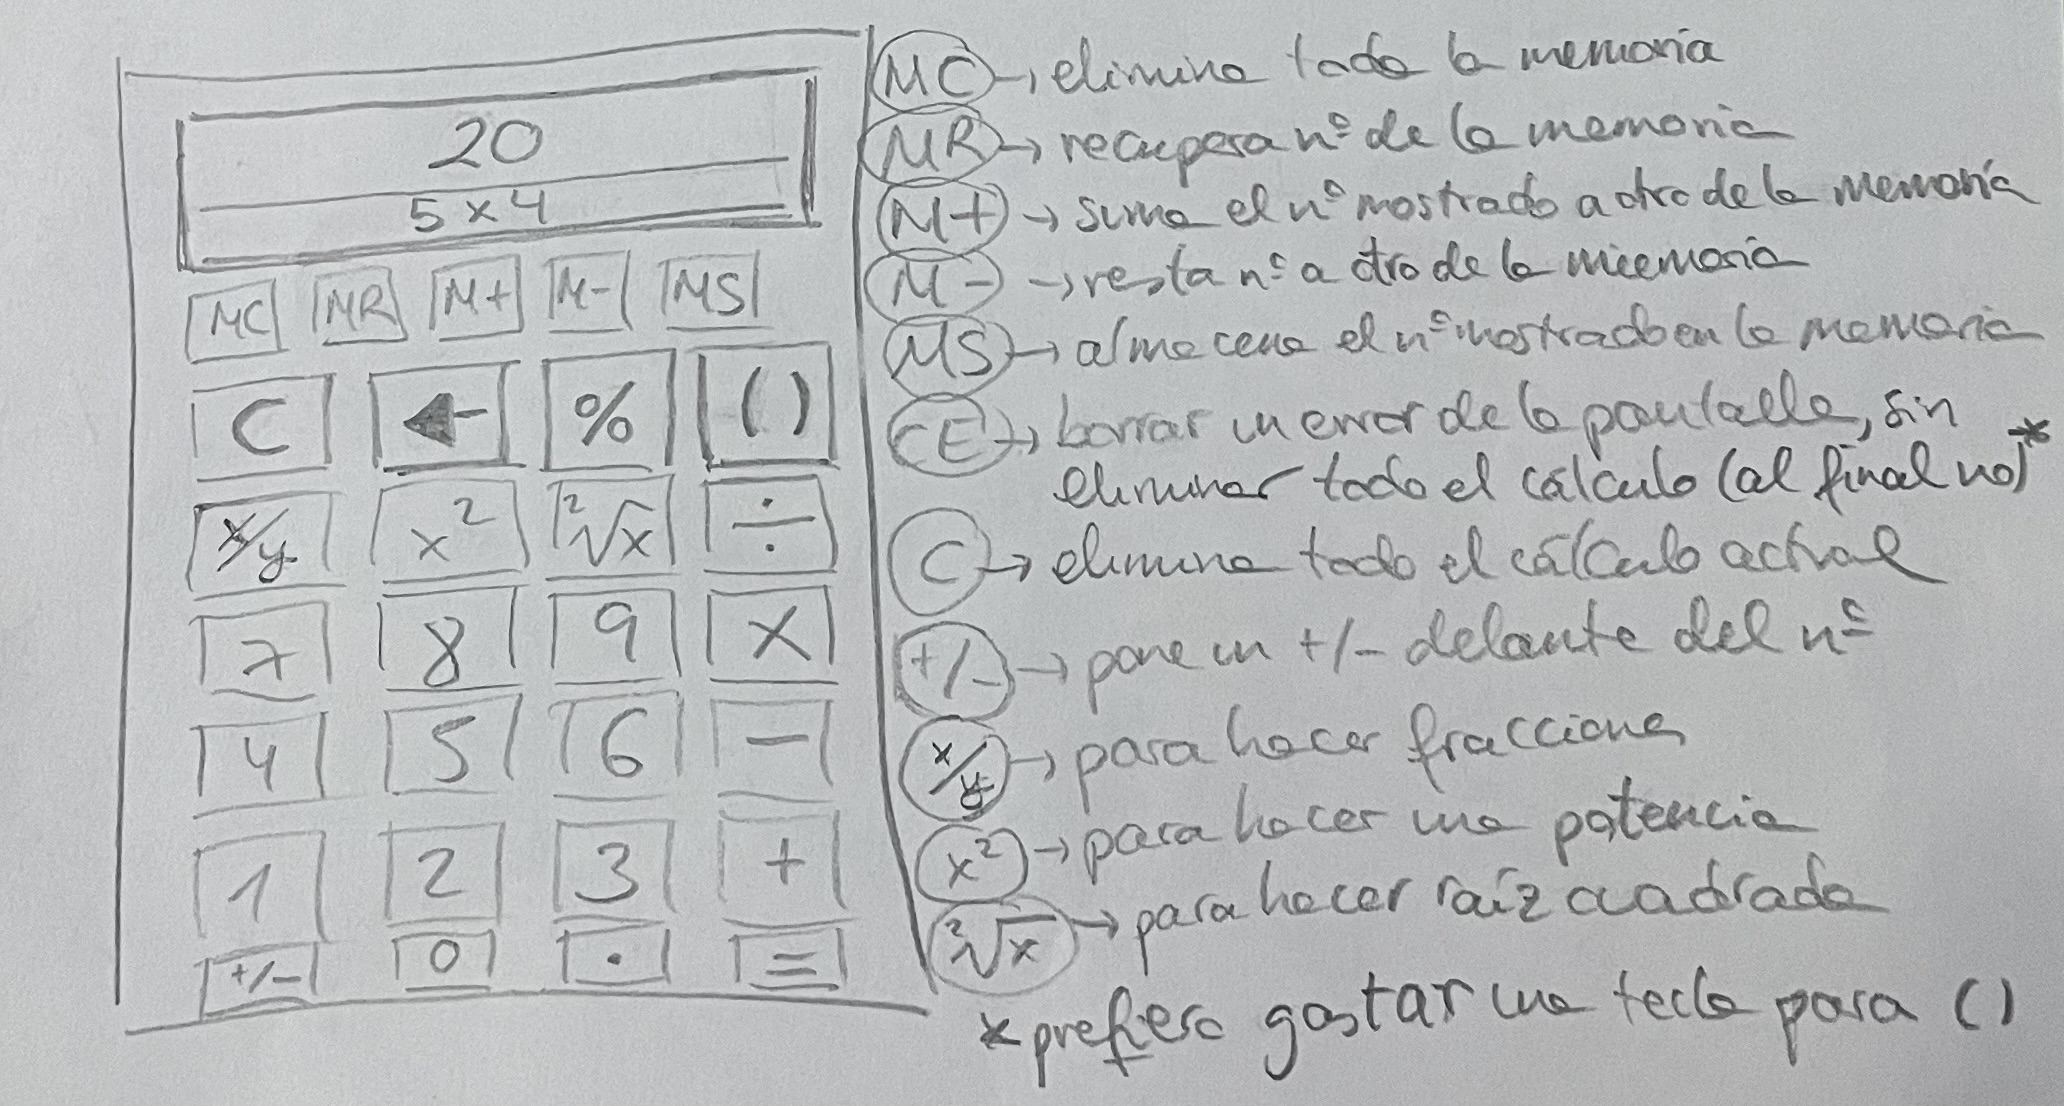 20
5 x 4
MC MR M+ M- MS
C ← % ()
x/y x² ²√x ÷
7 8 9 X
4 5 6 -
1 2 3 +
+/- 0 . =
MC → elimina toda la memoria
MR → recupera nº de la memoria
M+ → suma el nº mostrado a otro de la memoria
M- → resta nº a otro de la memoria
MS → almacena el nº mostrado en la memoria
CE → borrar un error de la pantalla, sin
eliminar todo el cálculo (al final no)*
C → elimina todo el cálculo actual
+/- → pone un +/- delante del nº
x/y → para hacer fracciones
x² → para hacer una potencia
²√x → para hacer raíz cuadrada
* prefiero gastar una tecla para ()